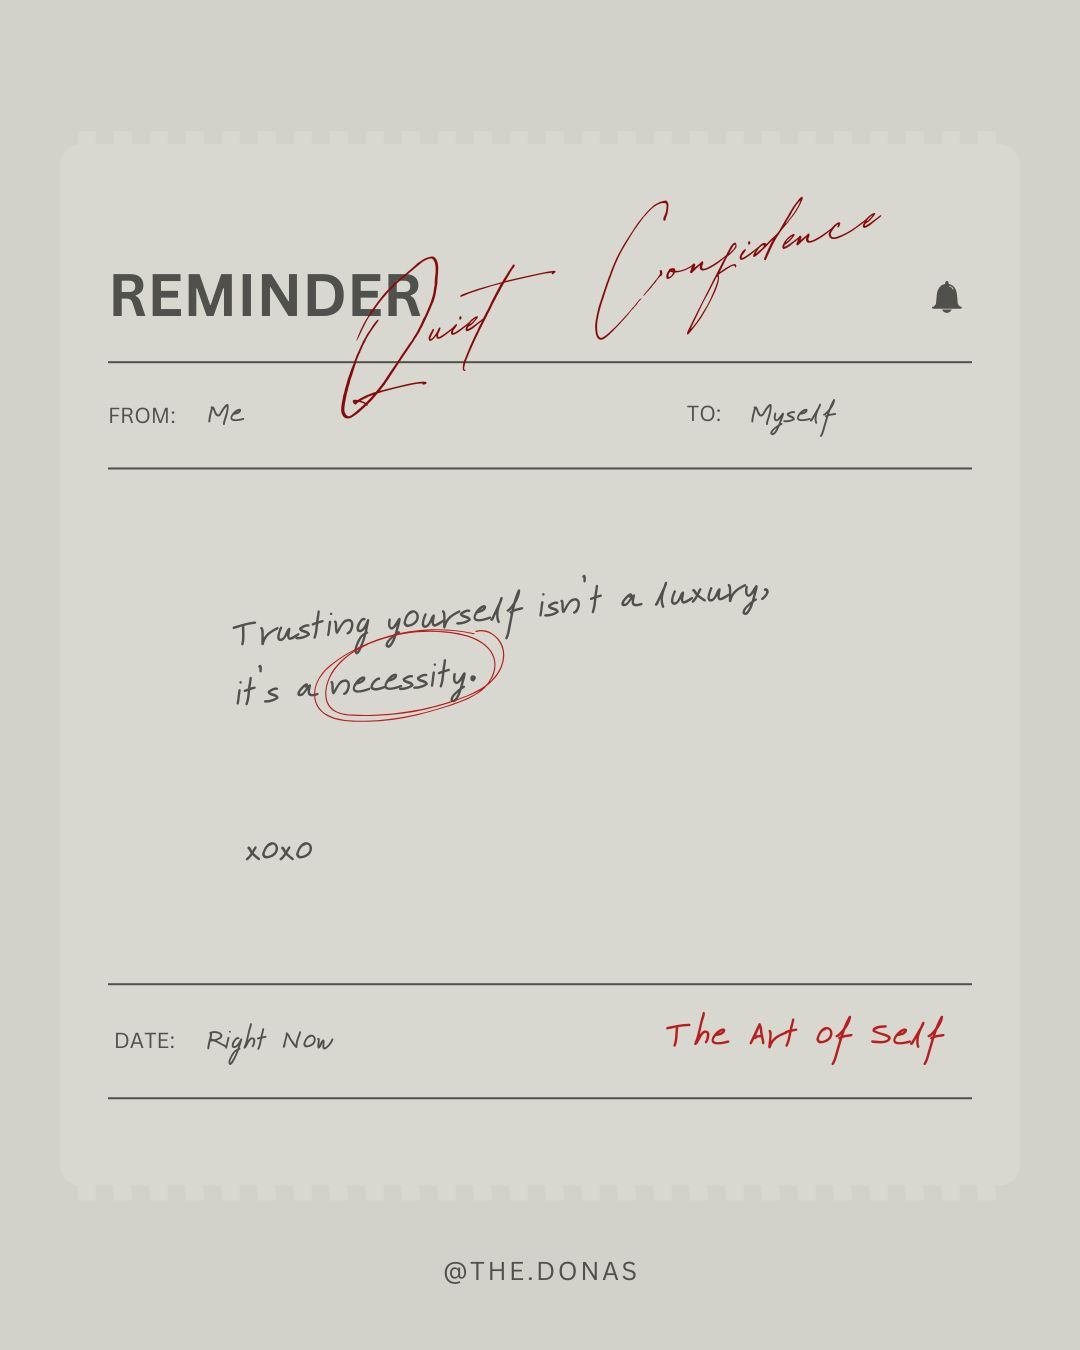 REMINDER
Quiet Confidence
FROM: Me
TO: Myself
Trusting yourself isn't a luxury,
it's a necessity.
xoxo
DATE: Right Now
The Art Of Self
@THE.DONAS